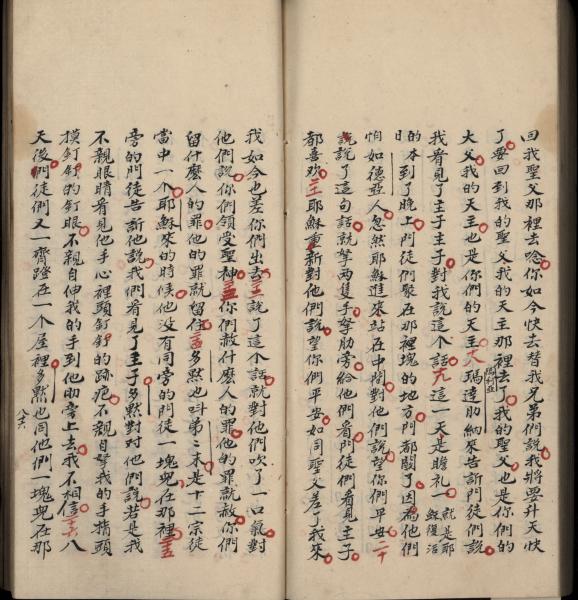 回我聖父那裡去唸你如今快去替我兄弟們說我將要升天快
了要回到我的聖父我的天主那裡去了我的聖父也是你們的
大父我的天主也是你們的天主大瑪達肋納來告訴門徒們說
我看見了主子主子對我說這个話九這一天是瞻礼一
就是耶
穌復活
的日
本到了晚上門徒們聚在那裡塊的地方門都關了因為他們
怕如德亞人忽然耶穌進來站在中間對他們說望你們平安二十
說說了這句話就拏两隻手拏肋旁給他們看門徒們看見主子
都喜欢二一耶穌重新對他們說望你們平安如同聖父差了我來
我如今也差你們出去三說了這个話就對他們吹了一口氣對
他們說你們領受聖神三你們赦什麼人的罪他的罪就赦你們
留什麼人的罪他的罪就留住三多黙也呌弟二末是十二宗徒
當中一个耶穌來的時候他没有同旁的門徒一塊兒在那裡五
旁的門徒告訴他說我們看見了主子多黙對他們說若是我
不親眼睛看見他手心裡頭釘釘的跡疤不親自拏我的手指頭
摸釘釘的釘眼不親自伸我的手到他肋旁上去我不相信二六八
天後門徒們又一齊蹬在一个屋裡多黙也同他們一塊兒在那